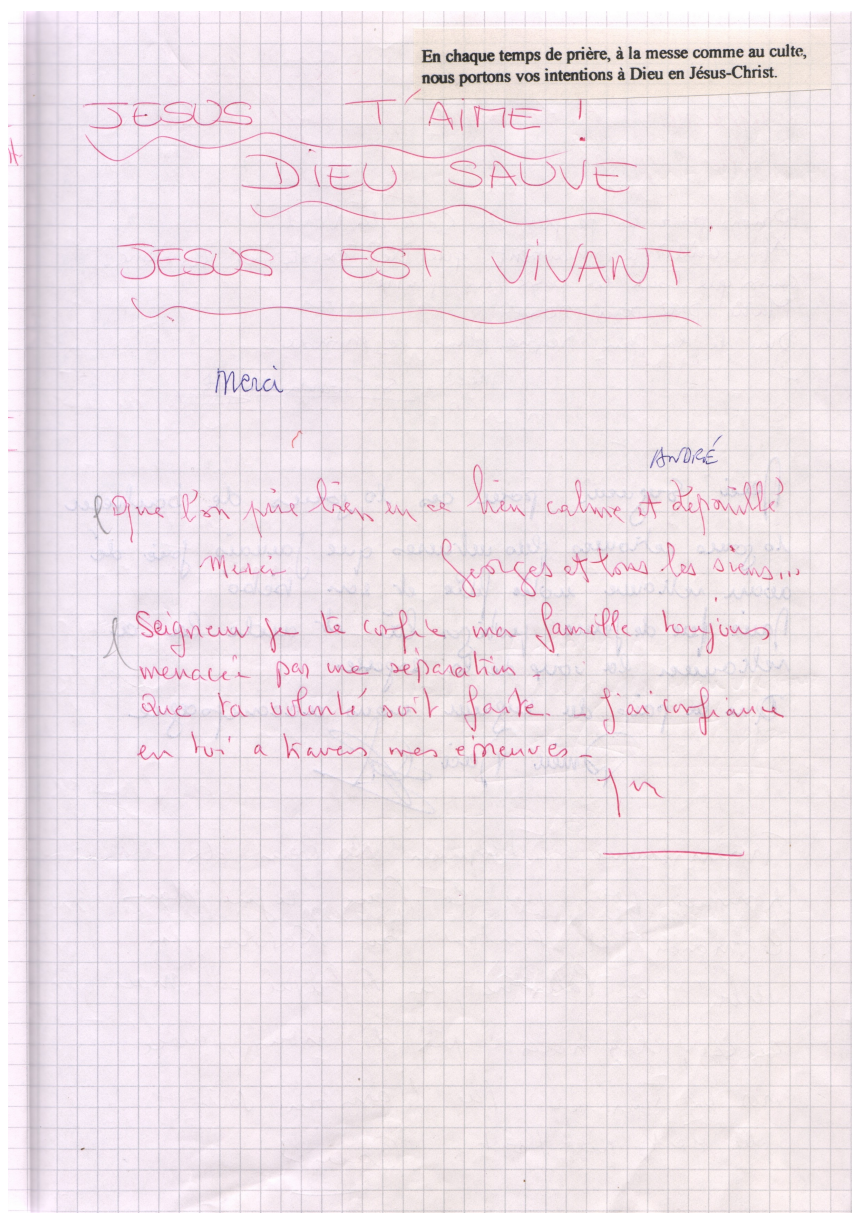 En chaque temps de prière, à la messe comme au culte,
nous portons vos intentions à Dieu en Jésus-Christ.
JESUS T'AiME !
DiEU SAUVE
JESUS EST ViVANT
Merci
ANDRÉ
Que l'on prie bien en ce lieu calme et dépouillé
Merci Georges et tous les siens...
Seigneur je te confie ma famille toujours
menacée par une séparation.
Que ta volonté soit faite - j'ai confiance
en toi a travers mes épreuves -